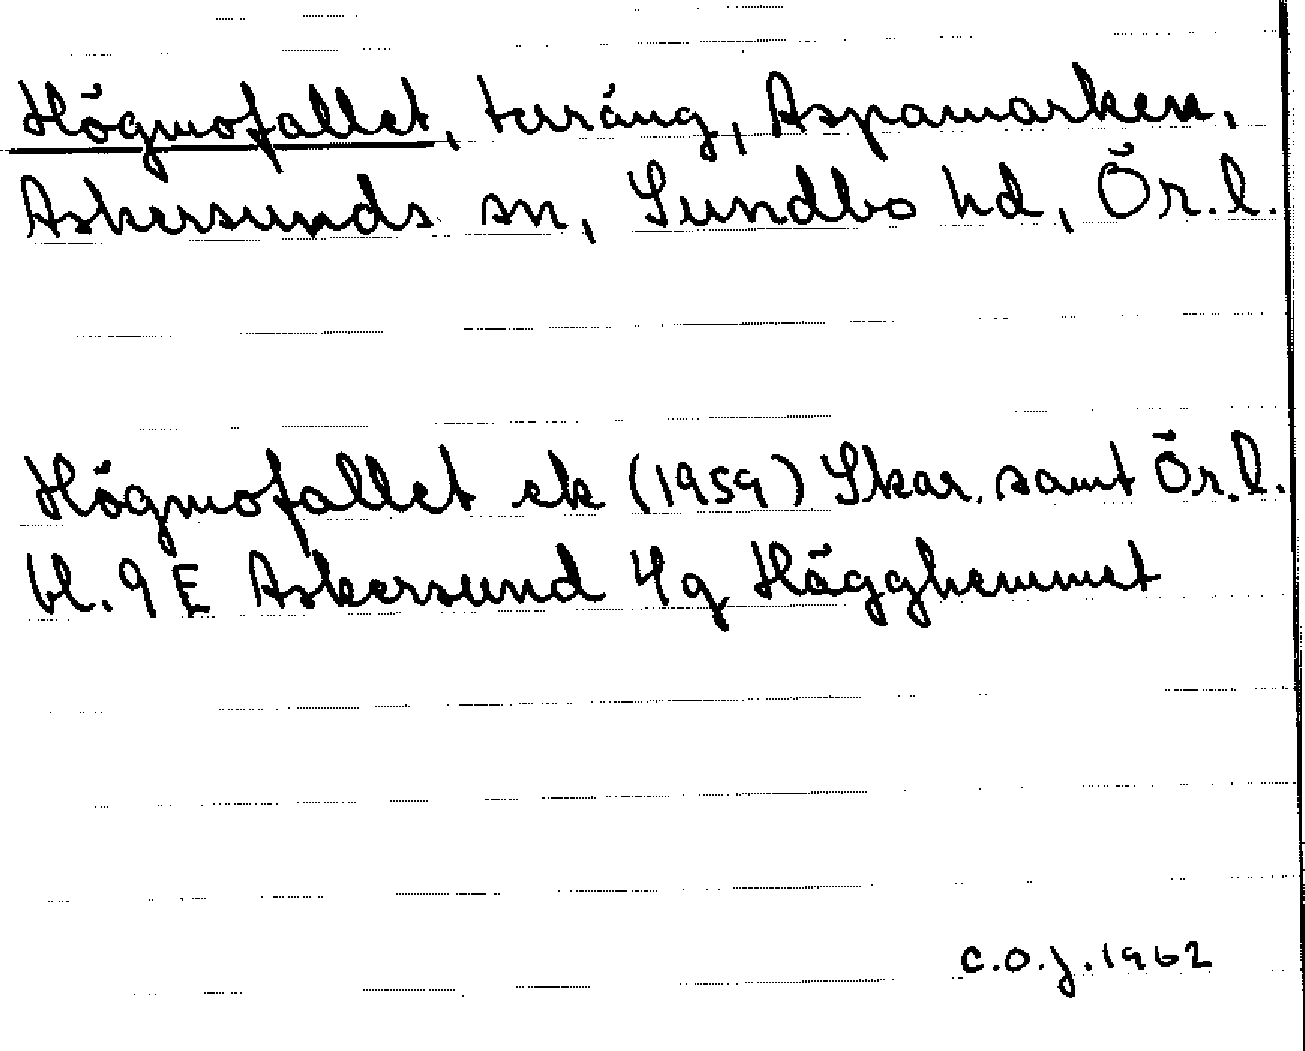 Högmofallet, terräng, Aspamarken,
Askersunds sn, Sundbo hd, Ör.l.
Högmofallet ek (1959) Skar. samt Ör.l.
bl. 9 E Askersund 4g Hägghemmet
C.O.J. 1962